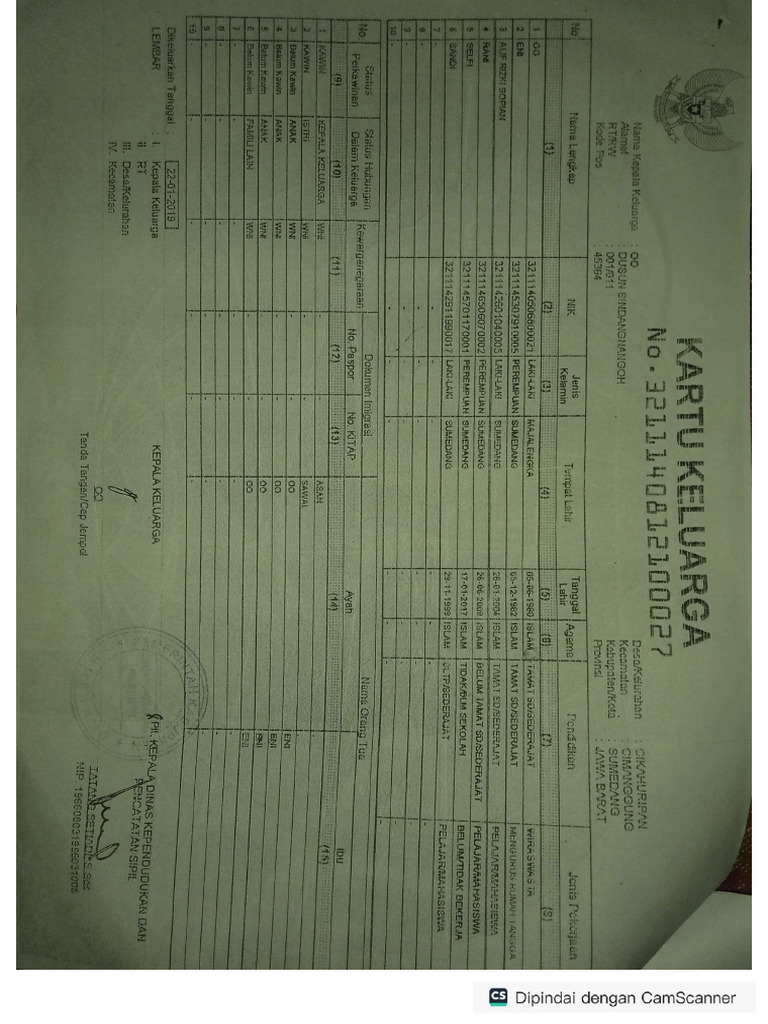 KARTU KELUARGA
No. 3211140812100027
Nama Kepala Keluarga : OO
Alamat : DUSUN BINDANGNANGOH
RT/RW : 001/011
Kode Pos : 45364
Desa/Kelurahan : CIKAHURIPAN
Kecamatan : CIMANGGUNG
Kabupaten/Kota : SUMEDANG
Provinsi : JAWA BARAT
No Nama Lengkap NIK Jenis Kelamin Tempat Lahir Tanggal Lahir Agama Pendidikan Jenis Pekerjaan
(1) (2) (3) (4) (5) (6) (7) (8)
1 OO 3211140506800021 LAKI-LAKI MAJALENGKA 05-06-1980 ISLAM TAMAT SD/SEDERAJAT WIRASWASTA
2 ENI 3211145307910005 PEREMPUAN SUMEDANG ISLAM TAMAT SD/SEDERAJAT MENGURUS RUMAH TANGGA
3 ALIF RIZKI SOPIAN 3211142601040005 LAKI-LAKI SUMEDANG 26-01-2004 ISLAM TAMAT SD/SEDERAJAT PELAJAR/MAHASISWA
4 RANI 3211146506070002 PEREMPUAN SUMEDANG ISLAM BELUM TAMAT SD/SEDERAJAT PELAJAR/MAHASISWA
5 SELFI 3211145701170001 PEREMPUAN SUMEDANG 17-01-2017 ISLAM TIDAK/BLM SEKOLAH BELUM/TIDAK BEKERJA
6 SANDI 3211142911990017 LAKI-LAKI SUMEDANG 29-11-1999 ISLAM SLTP/SEDERAJAT PELAJAR/MAHASISWA
7 - - - - - - - -
8 - - - - - - - -
9 - - - - - - - -
10 - - - - - - - -
No Status Perkawinan Status Hubungan Dalam Keluarga Kewarganegaraan Dokumen Imigrasi Nama Orang Tua
No. Paspor No. KITAP Ayah Ibu
(9) (10) (11) (12) (13) (14) (15)
1 KAWIN KEPALA KELUARGA WNI - - ASAN
2 KAWIN ISTRI WNI - - SAWAL
3 Belum Kawin ANAK WNI - - OO ENI
4 Belum Kawin ANAK WNI - - OO ENI
5 Belum Kawin ANAK WNI - - OO ENI
6 Belum Kawin FAMILI LAIN WNI - - OO ENI
7 - - - - - - -
8 - - - - - - -
9 - - - - - - -
10 - - - - - - -
Dikeluarkan Tanggal : 22-01-2019
LEMBAR : I. Kepala Keluarga
II. RT
III. Desa/Kelurahan
IV. Kecamatan
KEPALA KELUARGA
OO
Tanda Tangan/Cap Jempol
Plt. KEPALA DINAS KEPENDUDUKAN DAN
PENCATATAN SIPIL
TATANG SETIADI, S.Sos
NIP. 196608031986031005
CS Dipindai dengan CamScanner